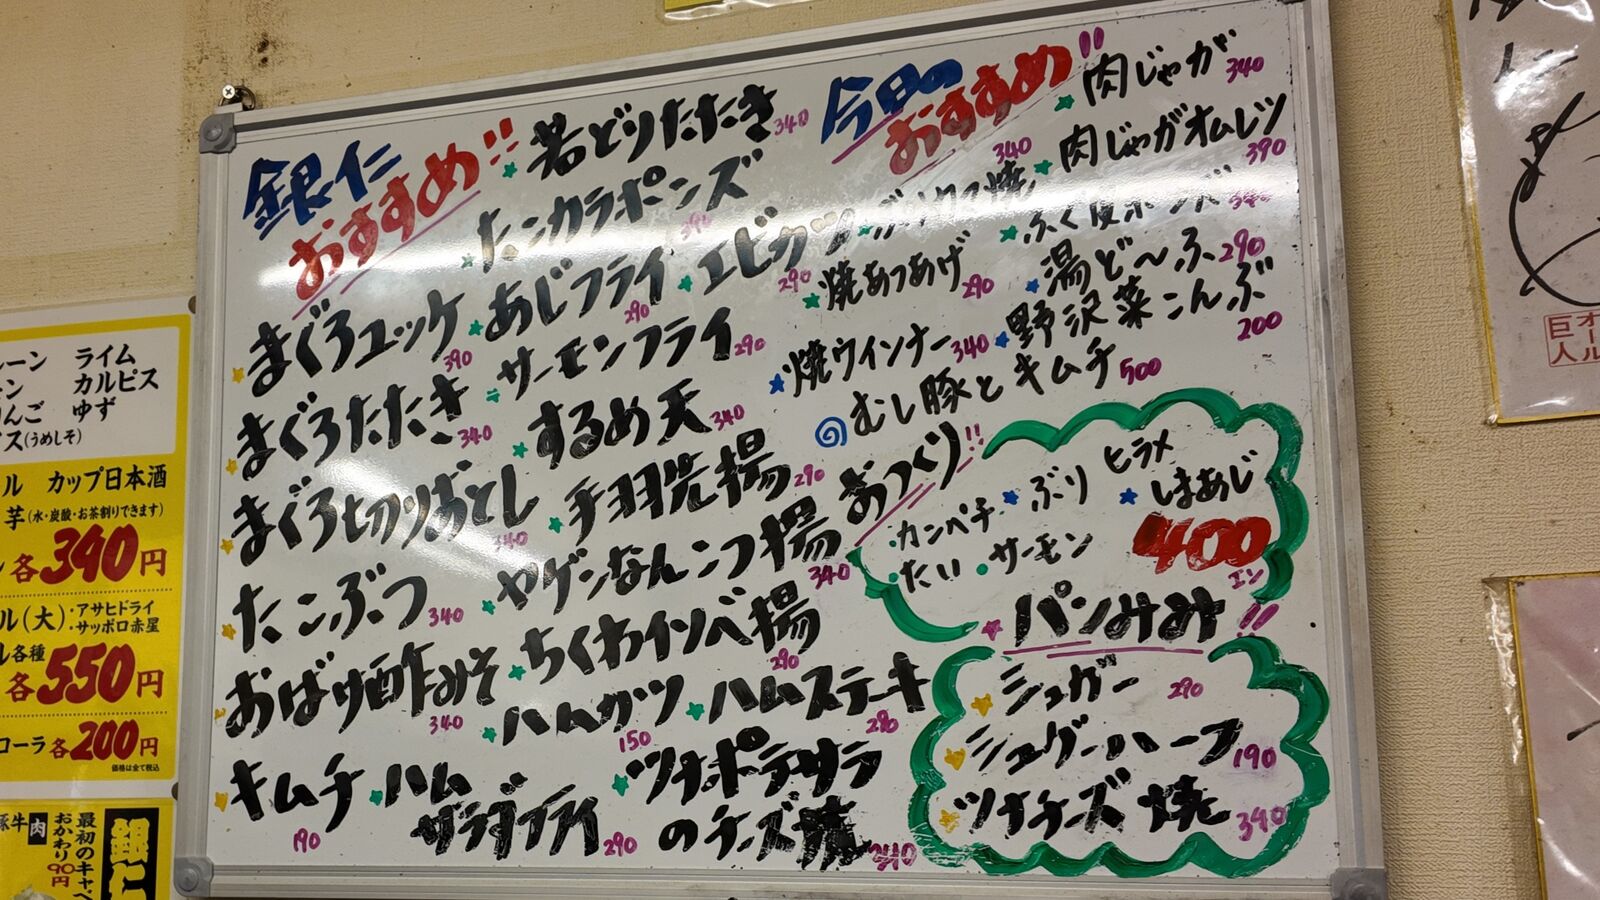 銀仁
おすすめ!!
若どりたたき 340
たこカラポンズ 390
まぐろユッケ 390
あじフライ 290
エビカツ 290
まぐろたたき 340
サーモンフライ 290
まぐろ切りおとし 340
するめ天 340
たこぶつ 340
手羽先揚 290
おばけ酢みそ 340
ヤゲンなんこつ揚 340
キムチ 190
ちくわイソベ揚 290
ハムカツ 150
ハムステーキ 290
ハム
サラダフライ 290
ツナポテサラ
のチーズ焼 340
今日の
おすすめ!!
肉じゃが 340
肉じゃがオムレツ 390
340
焼あつあげ 290
湯ど〜ふ 290
焼ウインナー 340
野沢菜こんぶ 200
むし豚とキムチ 500
おつくり!!
カンパチ ぶり ヒラメ
たい サーモン しまあじ
400
エン
パンみみ!!
シュガー 290
シュガーハーフ 190
ツナチーズ焼 340
ライム
カルピス
ゆず
(うめしそ)
カップ日本酒
芋(水・炭酸・お茶割りできます)
各340円
ル(大)・アサヒドライ
・サッポロ赤星
各種
各550円
コーラ各200円
価格は全て税込
豚牛肉
おかわり90円
最初のキャベ
銀仁
オール
巨人